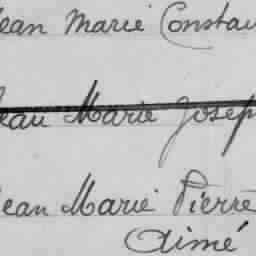 Jean Marie Constan
Jean Marie Josep
Jean Marie Pierre
Aimé